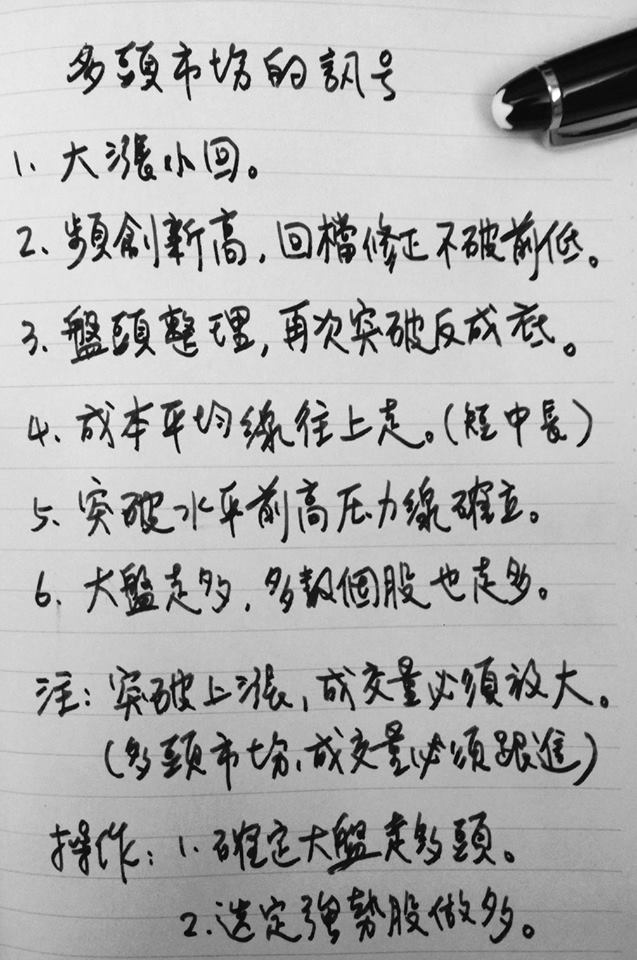 多頭市場的訊号
1. 大漲小回。
2. 頻創新高，回檔修正不破前低。
3. 盤頭整理，再次突破反成底。
4. 成本平均線往上走。(短中長)
5. 突破水平前高压力線確立。
6. 大盤走多，多數個股也走多。
注：突破上漲，成交量必須放大。
(多頭市場，成交量必須跟進)
操作：1. 確定大盤走多頭。
2. 选定強勢股做多。